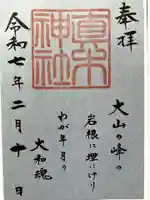 奉拝
大山の峰の
岩根に埋にけり
わが年月の
大和魂
眞木
神社
令和七年二月十日